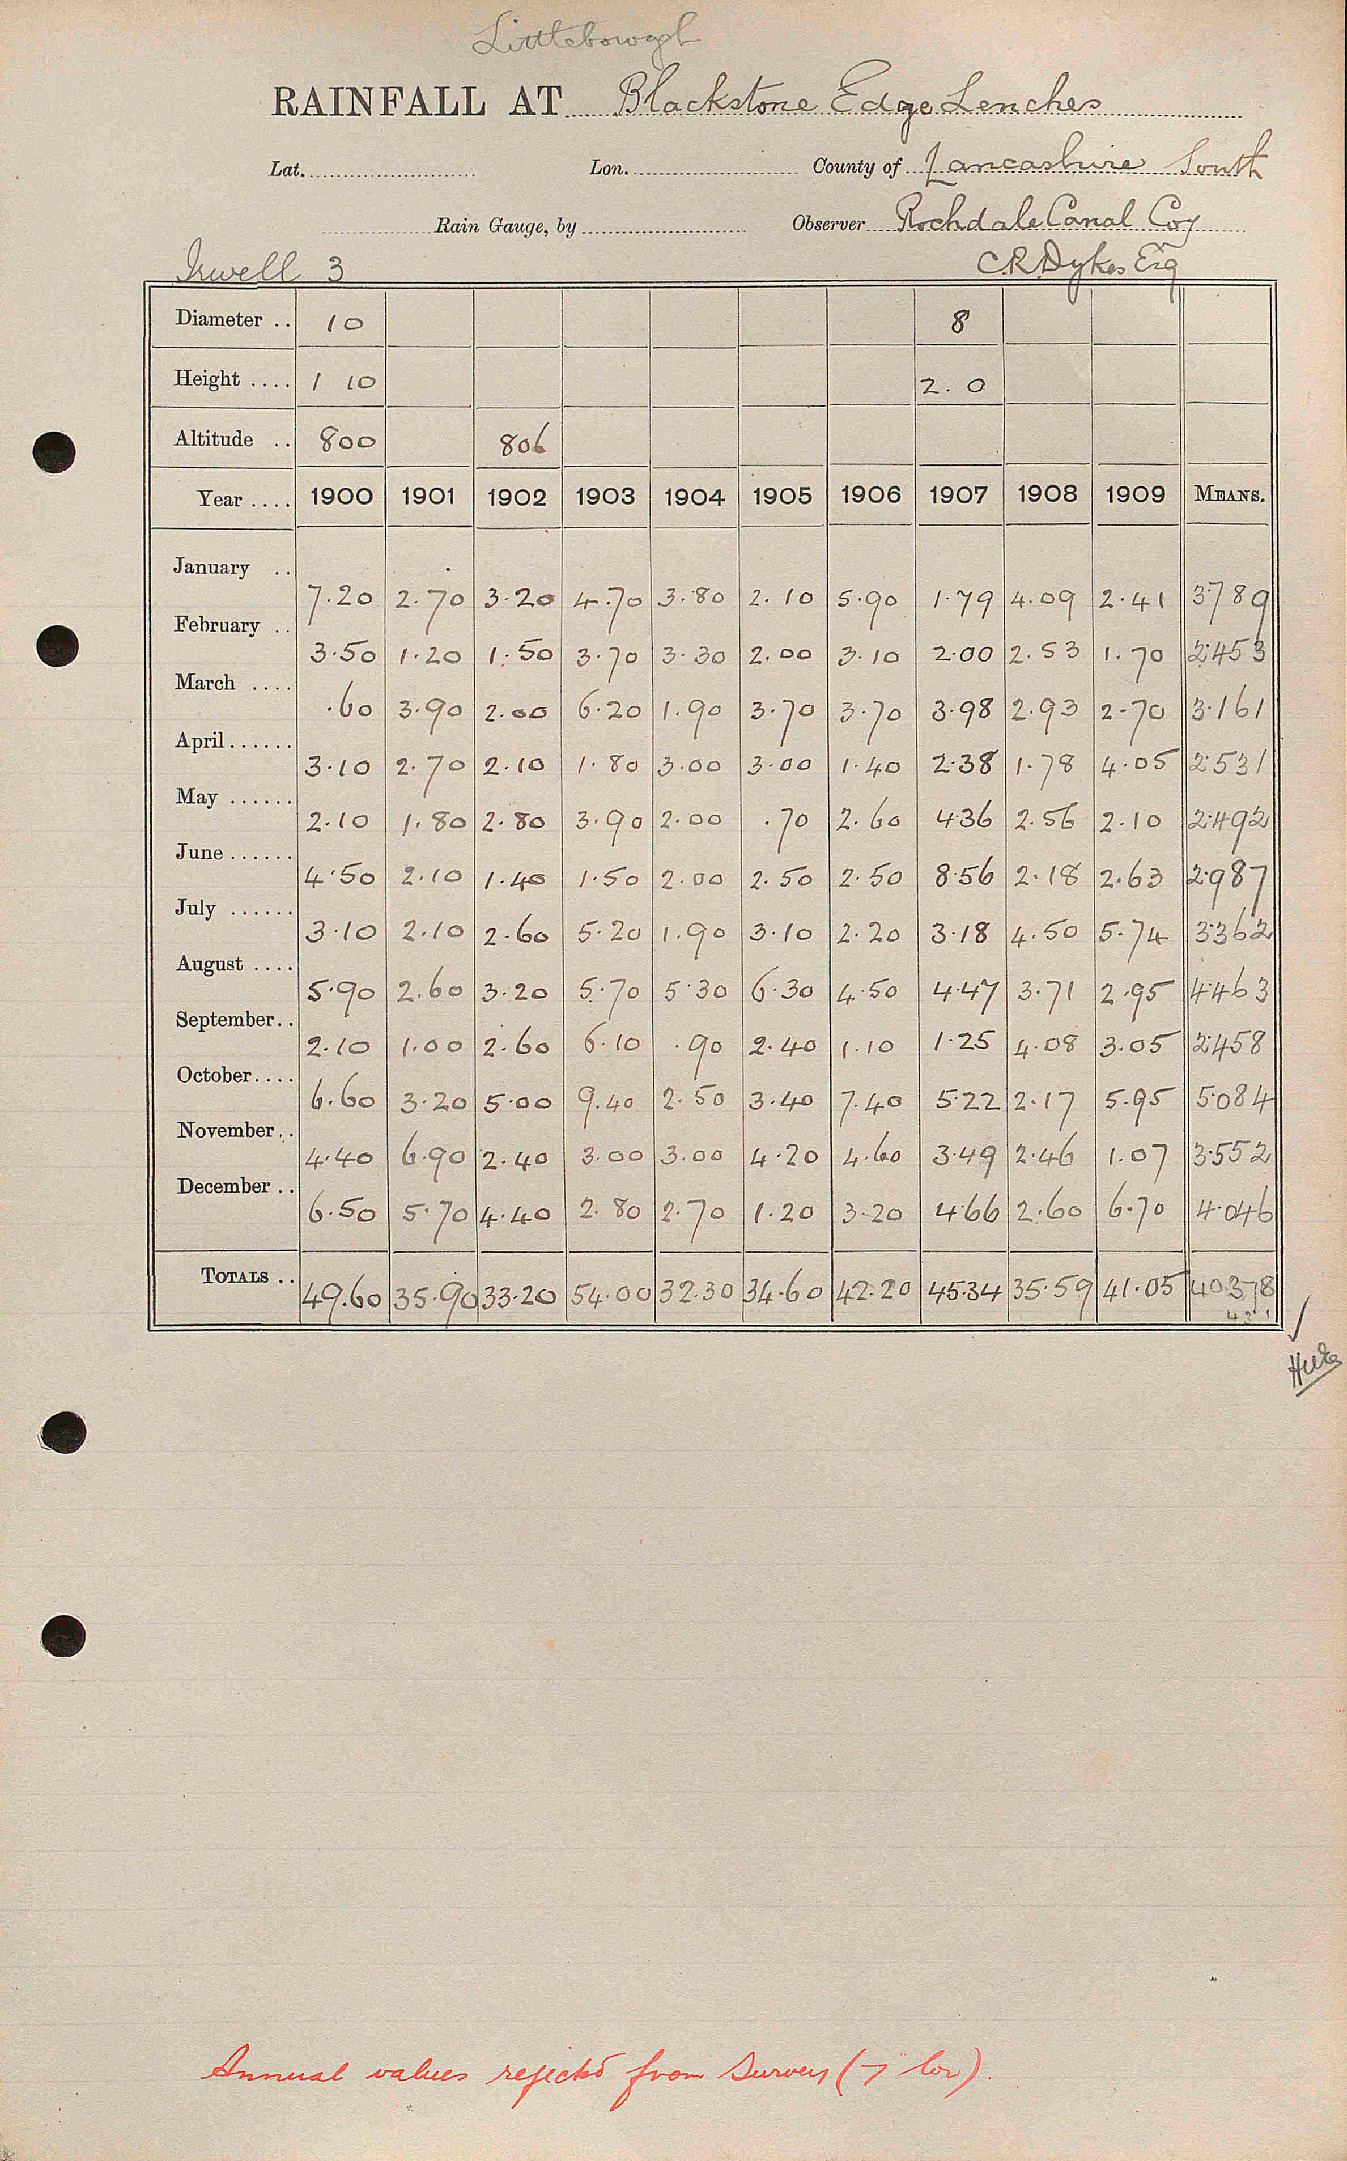 Littleborough
RAINFALL AT Blackstone Edge Lenches
Lat. Lon. County of Lancashire South
Rain Gauge, by Observer Rochdale Canal Coy
Irwell 3 C.R. Dykes Esq
Diameter .. 10 8
Height .... 1 10 2.0
Altitude .. 800 806
Year .... 1900 1901 1902 1903 1904 1905 1906 1907 1908 1909 MEANS.
January .. 7.20 2.70 3.20 4.70 3.80 2.10 5.90 1.79 4.09 2.41 3.789
February .. 3.50 1.20 1.50 3.70 3.30 2.00 3.10 2.00 2.53 1.70 2.453
March .... .60 3.90 2.00 6.20 1.90 3.70 3.70 3.98 2.93 2.70 3.161
April...... 3.10 2.70 2.10 1.80 3.00 3.00 1.40 2.38 1.78 4.05 2.531
May ...... 2.10 1.80 2.80 3.90 2.00 .70 2.60 4.36 2.56 2.10 2.492
June ...... 4.50 2.10 1.40 1.50 2.00 2.50 2.50 8.56 2.18 2.63 2.987
July ...... 3.10 2.10 2.60 5.20 1.90 3.10 2.20 3.18 4.50 5.74 3.362
August .... 5.90 2.60 3.20 5.70 5.30 6.30 4.50 4.47 3.71 2.95 4.463
September.. 2.10 1.00 2.60 6.10 .90 2.40 1.10 1.25 4.08 3.05 2.458
October.... 6.60 3.20 5.00 9.40 2.50 3.40 7.40 5.22 2.17 5.95 5.084
November.. 4.40 6.90 2.40 3.00 3.00 4.20 4.60 3.49 2.46 1.07 3.552
December .. 6.50 5.70 4.40 2.80 2.70 1.20 3.20 4.66 2.60 6.70 4.046
TOTALS .. 49.60 35.90 33.20 54.00 32.30 34.60 42.20 45.34 35.59 41.05 40.378
Annual values rejected from Survey (7" low).